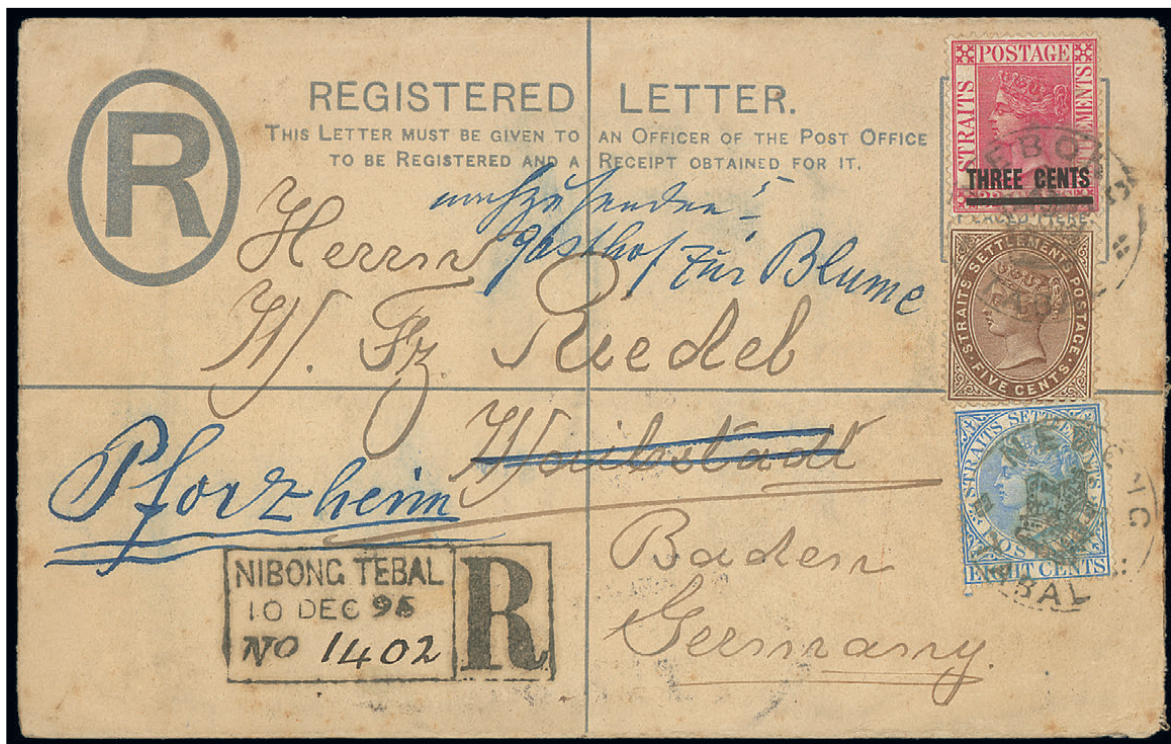 REGISTERED LETTER.
THIS LETTER MUST BE GIVEN TO AN OFFICER OF THE POST OFFICE
TO BE REGISTERED AND A RECEIPT OBTAINED FOR IT.
R
nachzusenden -
Gasthof zur Blume
Herrn
W. Fz. Riedel
Waibstadt
Pforzheim
Baden
Germany.
NIBONG TEBAL
10 DEC 95
No 1402
R
STRAITS POSTAGE SETTLEMENTS
THREE CENTS
PLACED HERE.
STRAITS SETTLEMENTS POSTAGE.
FIVE CENTS.
STRAITS SETTLEMENTS
POSTAGE
EIGHT CENTS
NIBONG
TEBAL